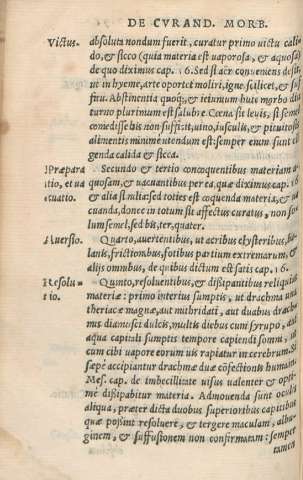 DE CVRAND. MORB.
Victus.
absoluta nondum fuerit, curatur primo victu cali-
do, & sicco (quia materia est vaporosa, & aquosa)
de quo diximus cap. 16. Sed si aer conueniens desit,
ut in hyeme, arte oportet moliri, igne. scilicet, & suf
fitu. Abstinentia quoq;, & ieiunum huic morbo diu
turno plurimum est salubre. Cœna sit leuis, si semel
comedisse bis non sufficit, uino, iusculis, & pituitosis
alimentis minime utendum est: semper enim sunt eli
genda calida & sicca.
Præpara
tio, et ua
cuatio.
Secundo & tertio concoquentibus materiam a-
quosam, & uacuantibus per ea, quæ diximus cap. 16
& alia similia: sed toties est coquenda materia, & ua
cuanda, donec in totum sit affectus curatus, non so-
lum semel, sed bis, ter, quater.
Auersio.
Quarto, auertentibus, ut acribus clysteribus,
lanis, frictionibus, fotibus partium extremarum, &
alijs omnibus, de quibus dictum est satis cap. 16.
Resolu-
tio.
Quinto, resoluentibus, & dissipantibus reliquias
materiæ: primo interius sumptis, ut drachma una
theriacæ magnæ, aut mithridati, aut duabus drachmis
mus diamosci dulcis, multis diebus cum syrupo,
aqua capitali sumptis tempore capiendi somni,
cum cibi uapore eorum uis rapiatur in cerebrum. Si
sæpè accipiantur drachmæ duæ cõfectionis
Mes. cap. de imbecillitate uisus ualenter & opti-
mè dissipabitur materia. Admouenda sunt oculis
aliqua, præter dicta duobus superioribus capitibus
quæ possint resoluere, & tergere maculam, albu-
ginem, & suffusionem non confirmatam: semper
tamen